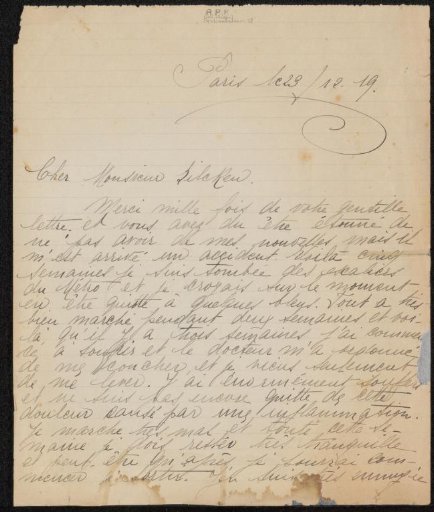 Paris le 23/12.19.
Cher Monsieur Zilcken.
Merci mille fois de votre gentille
lettre et vous avez du être étonné de
ne pas avoir de mes nouvelles, mais il
m'est arrivé un accident voilà cinq
semaines je suis tombée des escaliers
du Métro et je croyais sur le moment
en être quitte à quelques bleus. Tout a très
bien marché pendant deux semaines et voi-
là qu'il y a trois semaines j'ai commen-
cé à souffrir et le docteur m'a ordonné
de me coucher et je viens seulement
de me lever. J'ai énormément souffert
et ne suis pas encore quitte de cette
douleur causé par une inflammation.
Je marche très mal et toute cette se-
maine je dois rester très tranquille
et peut être qu'après je pourrai com-
mencer à sortir. Je suis très